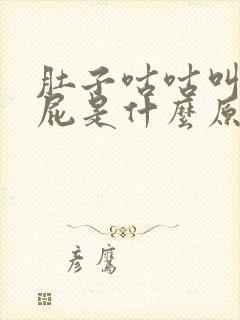 肚子咕咕叫
屁是什麼原
彦鷹